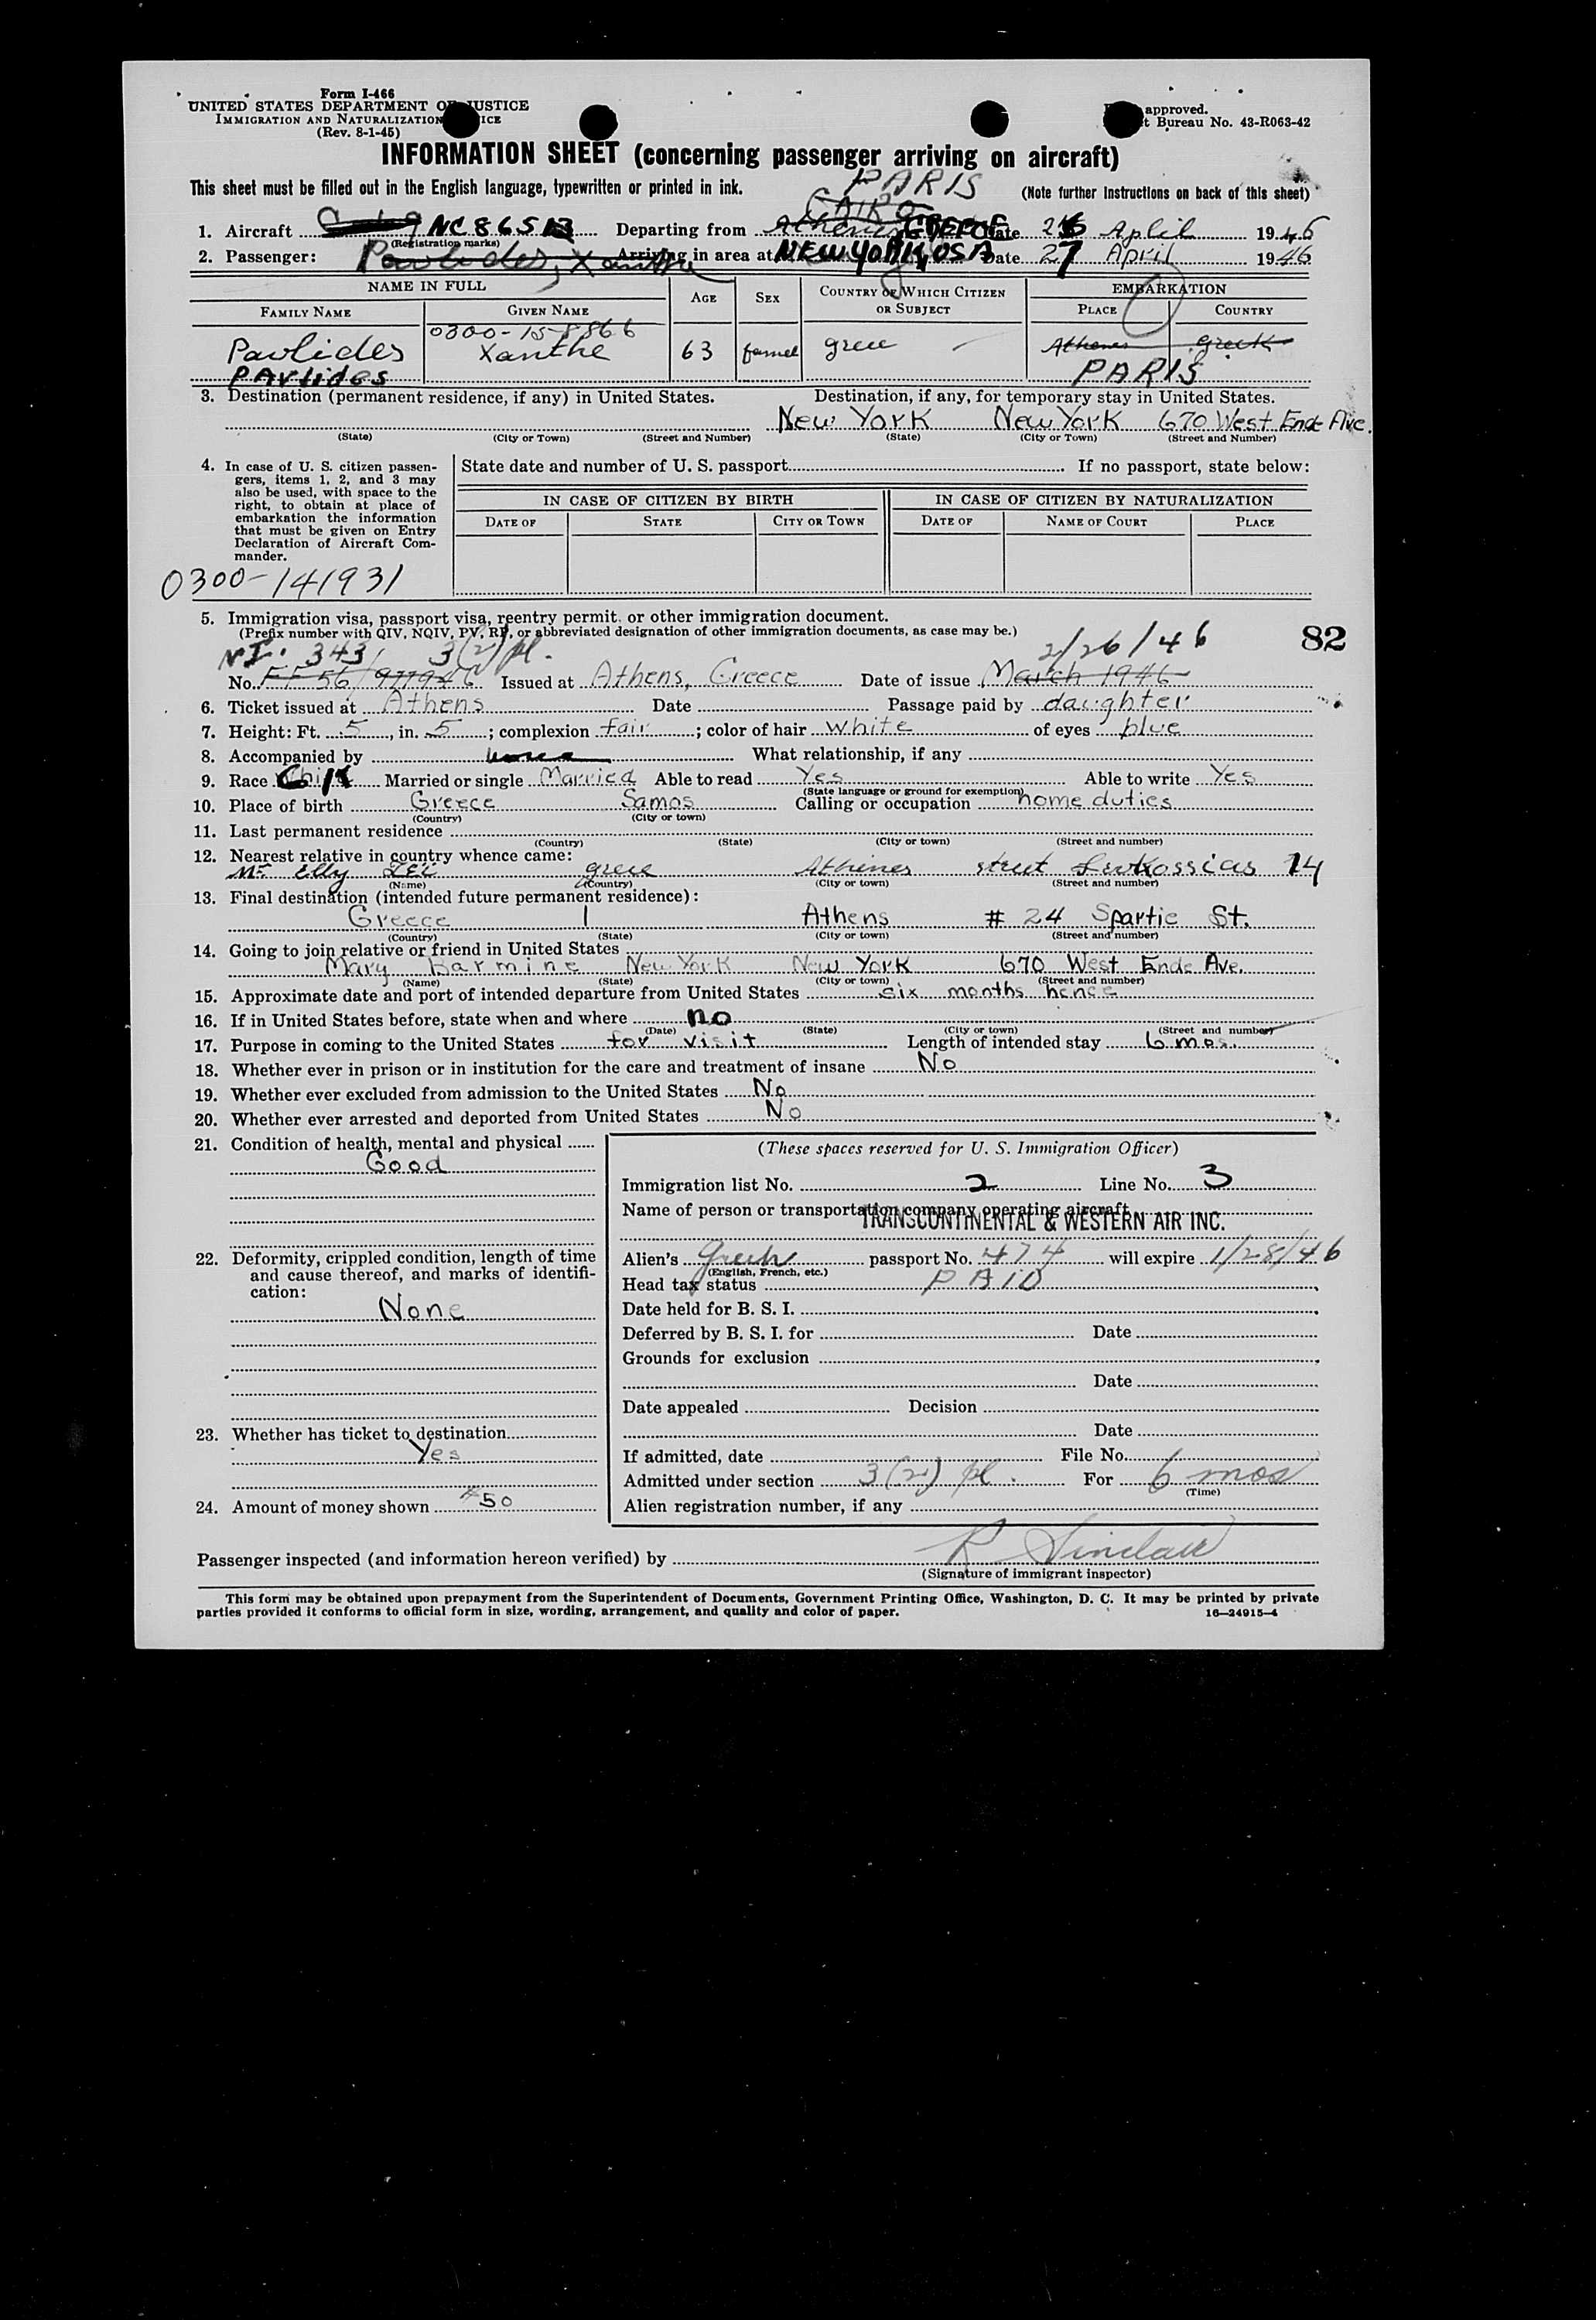 Form I-466
UNITED STATES DEPARTMENT OF JUSTICE
IMMIGRATION AND NATURALIZATION
(Rev. 8-1-45)
approved.
Bureau No. 43-R063-42
INFORMATION SHEET (concerning passenger arriving on aircraft)
This sheet must be filled out in the English language, typewritten or printed in ink.
PARIS
(Note further instructions on back of this sheet)
CAIRO
1. Aircraft NC 8651 Departing from Athens GREECE Date April 1946
(Registration marks)
2. Passenger: Pavlides, Xanthe Arriving in area at NEW YORK, USA Date 27 April 1946
NAME IN FULL AGE SEX COUNTRY OF WHICH CITIZEN OR SUBJECT EMBARKATION
FAMILY NAME GIVEN NAME PLACE COUNTRY
0300-15-8866
Pavlides Xanthe 63 femel grece Athenes Greek
PAvlides PARIS
3. Destination (permanent residence, if any) in United States. Destination, if any, for temporary stay in United States.
New York New York 670 West Ende Ave.
(State) (City or Town) (Street and Number) (State) (City or Town) (Street and Number)
4. In case of U. S. citizen passengers, items 1, 2, and 3 may also be used, with space to the right, to obtain at place of embarkation the information that must be given on Entry Declaration of Aircraft Commander.
State date and number of U. S. passport If no passport, state below:
IN CASE OF CITIZEN BY BIRTH IN CASE OF CITIZEN BY NATURALIZATION
DATE OF STATE CITY OR TOWN DATE OF NAME OF COURT PLACE
0300-141931
5. Immigration visa, passport visa, reentry permit, or other immigration document.
(Prefix number with QIV, NQIV, PV, RP, or abbreviated designation of other immigration documents, as case may be.)
82
NI. 343, 3(2) pl. 2/26/46
No. Issued at Athens, Greece Date of issue March 1946
6. Ticket issued at Athens Date Passage paid by daughter
7. Height: Ft. 5, in. 5; complexion fair; color of hair white of eyes blue
8. Accompanied by What relationship, if any
9. Race Married or single Married Able to read Yes Able to write Yes
(State language or ground for exemption)
10. Place of birth Greece Samos Calling or occupation home duties
(Country) (City or town)
11. Last permanent residence
(Country) (State) (City or town) (Street and number)
12. Nearest relative in country whence came:
Mr Elly grece Athines street 14
(Name) (Country) (City or town) (Street and number)
13. Final destination (intended future permanent residence):
Greece Athens # 24 Spartie St.
(Country) (State) (City or town) (Street and number)
14. Going to join relative or friend in United States
Mary Barmine New York New York 670 West Ende Ave.
(Name) (State) (City or town) (Street and number)
15. Approximate date and port of intended departure from United States six months hence
16. If in United States before, state when and where no
(Date) (State) (City or town) (Street and number)
17. Purpose in coming to the United States for visit Length of intended stay 6 mos.
18. Whether ever in prison or in institution for the care and treatment of insane No
19. Whether ever excluded from admission to the United States No
20. Whether ever arrested and deported from United States No
21. Condition of health, mental and physical
Good
22. Deformity, crippled condition, length of time and cause thereof, and marks of identification:
None
23. Whether has ticket to destination
Yes
24. Amount of money shown $50
(These spaces reserved for U. S. Immigration Officer)
Immigration list No. 2 Line No. 3
Name of person or transportation company operating aircraft
TRANSCONTINENTAL & WESTERN AIR INC.
Alien's Greek passport No. 474 will expire 1/28/46
(English, French, etc.)
Head tax status PAID
Date held for B. S. I.
Deferred by B. S. I. for Date
Grounds for exclusion
Date
Date appealed Decision
Date
If admitted, date File No.
Admitted under section 3(2) pl. For 6 mos
(Time)
Alien registration number, if any
Passenger inspected (and information hereon verified) by R Sinclair
(Signature of immigrant inspector)
This form may be obtained upon prepayment from the Superintendent of Documents, Government Printing Office, Washington, D. C. It may be printed by private
parties provided it conforms to official form in size, wording, arrangement, and quality and color of paper. 16—24915-4